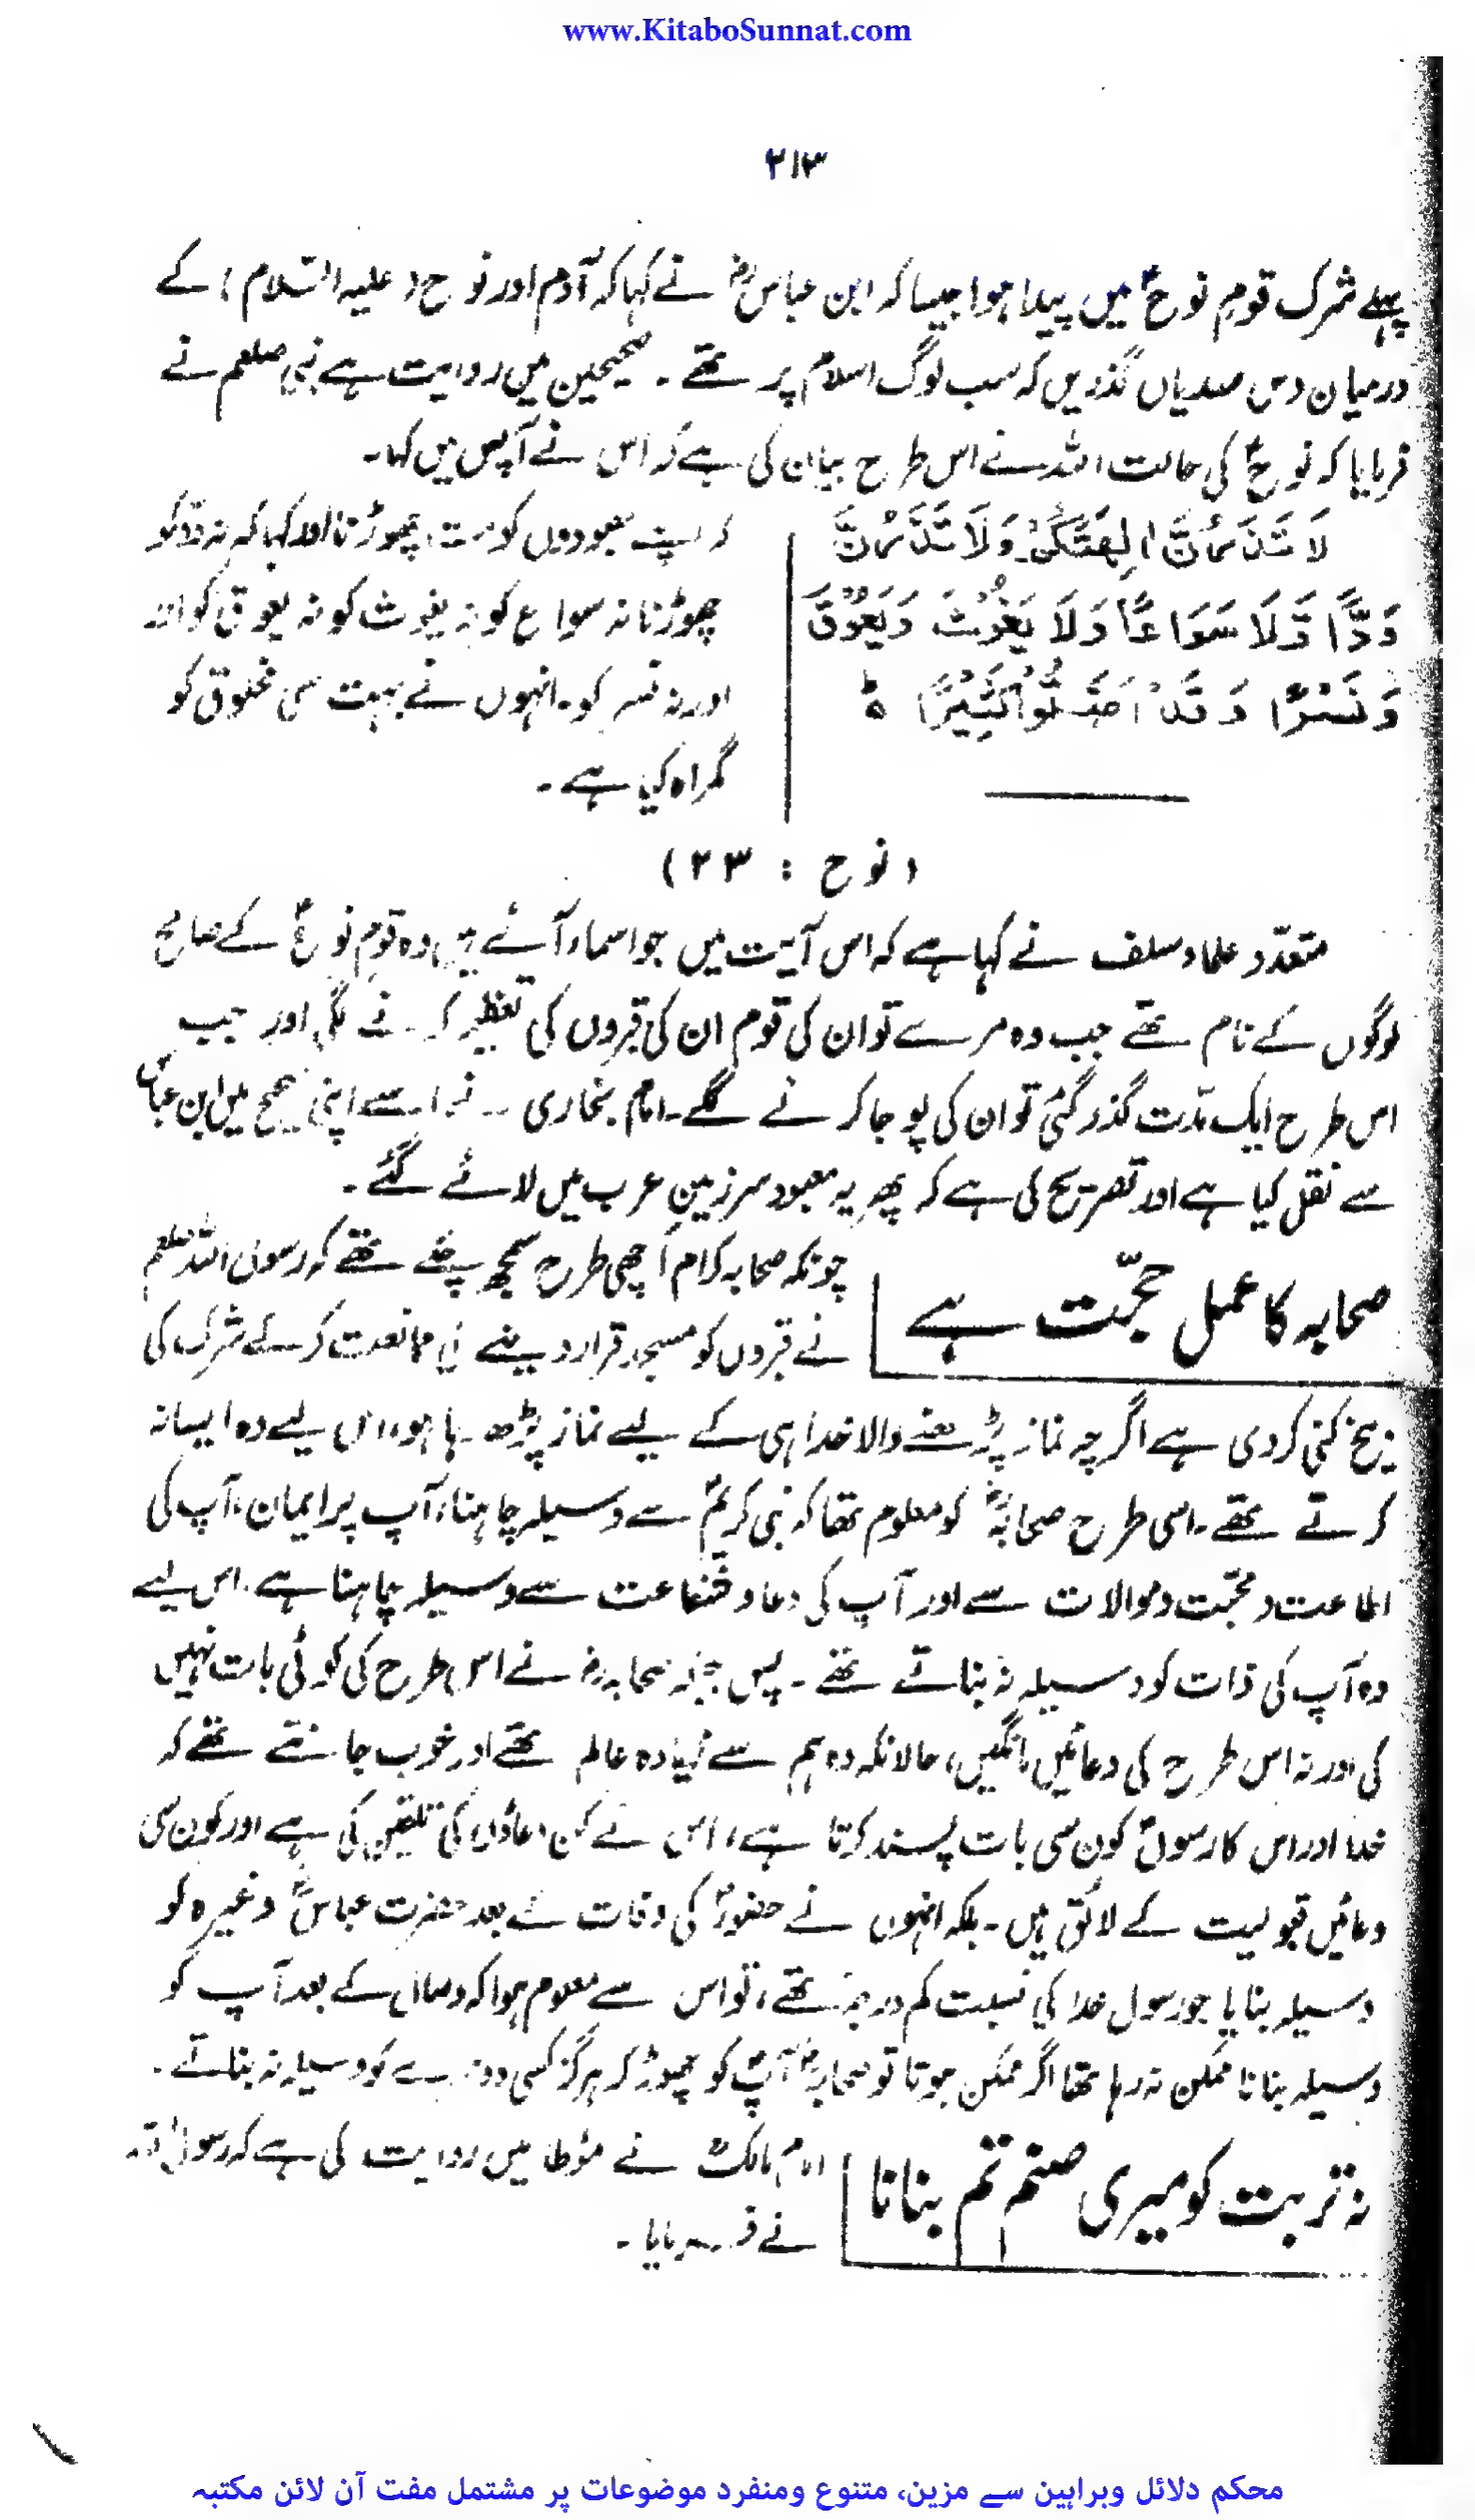 www.KitaboSunnat.com
۲۱۳
پہلے شرک قومِ نوحؑ میں پیدا ہوا جیسا کہ ابن عباسؓ نے کہا کہ آدم اور نوح (علیہ السّلام) کے
درمیان دس صدیاں گذریں کہ سب لوگ اسلام پر تھے۔ صحیحین میں روایت ہے نبی صلعم نے
فرمایا کہ نوحؑ کی حالت اللہ نے اس طرح بیان کی ہے کہ اس نے آپس میں کہا۔
لَا تَذَرُنَّ اٰلِهَتَكُمْ وَلَا تَذَرُنَّ
وَدًّا وَّلَا سُوَاعًا وَلَا يَغُوْثَ وَيَعُوْقَ
وَنَسْرًا وَقَدْ اَضَلُّوْا كَثِيْرًا ط
کہ اپنے معبودوں کو مت چھوڑنا اور کہا کہ نہ ودّ کو
چھوڑنا نہ سواع کو نہ یغوث کو نہ یعوق کو اور
اور نہ نسر کو۔ انہوں نے بہت سی مخلوق کو
گمراہ کیا ہے۔
(نوح : ۲۳)
متعدّد علماء سلف نے کہا ہے کہ اس آیت میں جو اسماء آئے ہیں وہ قومِ نوحؑ کے صالح
لوگوں کے نام تھے جب وہ مرے تو ان کی قوم ان کی قبروں کی تعظیم کرنے لگی اور جب
اس طرح ایک مدّت گذر گئی تو ان کی پوجا کرنے لگے۔ امام بخاری نے اسے اپنی صحیح میں ابن عباسؓ
سے نقل کیا ہے اور تصریح کی ہے کہ پھر یہ معبود سرزمینِ عرب میں لائے گئے۔
صحابہ کا عمل حجّت ہے
چونکہ صحابہ کرام اچھی طرح سمجھ چکے تھے کہ رسول اللہ صلعم
نے قبروں کو مسجد قرار دینے کی ممانعت کرکے شرک کی
بیخ کنی کردی ہے اگرچہ نماز پڑھنے والا خدا ہی کے لیے نماز پڑھ رہا ہو، اس لیے وہ ایسا نہ
کرتے تھے۔ اسی طرح صحابہؓ کو معلوم تھا کہ نبی کریمؐ سے وسیلہ چاہنا، آپ پر ایمان، آپ کی
اطاعت و محبّت و موالات سے اور آپ کی دعا و شفاعت سے وسیلہ چاہنا ہے۔ اس لیے
وہ آپ کی ذات کو وسیلہ نہ بناتے تھے۔ پس جبکہ صحابہؓ نے اس طرح کی کوئی بات نہیں
کی اور نہ اس طرح کی دعائیں مانگیں، حالانکہ وہ ہم سے زیادہ عالم تھے اور خوب جانتے تھے کہ
خدا اور اس کا رسولؐ کون سی بات پسند کرتا ہے، اس نے کن دعاؤں کی تلقین کی ہے اور کون سی
دعائیں قبولیت کے لائق ہیں۔ بلکہ انہوں نے حضورؐ کی وفات کے بعد حضرت عباسؓ وغیرہ کو
وسیلہ بنایا جو رسول خدا کی نسبت کم درجہ تھے، تو اس سے معلوم ہوا کہ وصال کے بعد آپ کو
وسیلہ بنانا ممکن نہ رہا تھا اگر ممکن ہوتا تو صحابہؓ آپؐ کو چھوڑ کر ہرگز کسی دوسرے کو وسیلہ نہ بناتے۔
نہ تربت کو میری صنم تم بنانا
امام مالکؒ نے مؤطا میں روایت کی ہے کہ رسول اللہ
نے فرمایا۔
محکم دلائل وبراہین سے مزین، متنوع ومنفرد موضوعات پر مشتمل مفت آن لائن مکتبہ